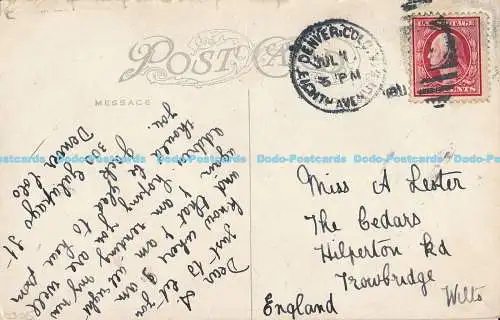 POST CARD
MESSAGE
DENVER, COLO.
JUL 11
5 PM
EIGHTH AVENUE
CENTS
Dear A
Just to let you
know where I am
and that I am all right
again am sending my new
address hoping you are well
should be glad to hear from
you. Jack
300 Galapago St-
Denver Colo
Miss A Lester
The Cedars
Hilperton Rd
Trowbridge
Wilts
England
Dodo-Postcards Dodo-Postcards Dodo-Postcards Dodo-Postcards